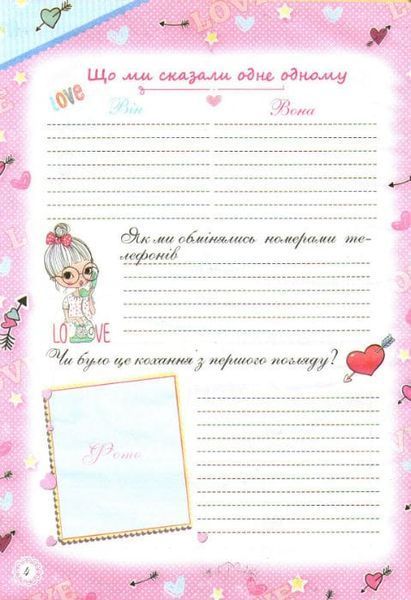 LOVE
Що ми сказали одне одному
LOVE
Він
Вона
Як ми обмінялись номерами те-
лефонів
LOVE
Чи було це кохання з першого погляду?
Фото
4
LOVE